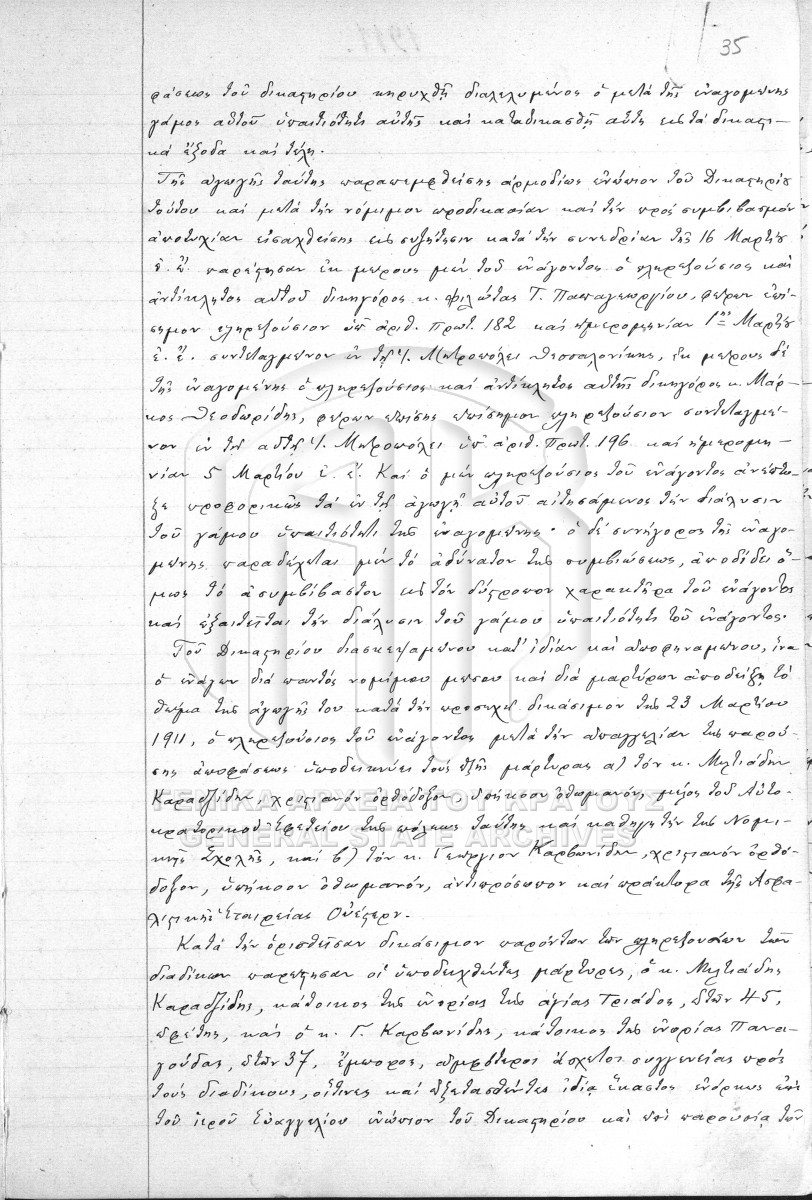 35
φάσεως τοῦ δικαστηρίου κηρυχθῇ διαλελυμένος ὁ μετὰ τῆς ἐναγομένης
γάμος αὐτοῦ ὑπαιτιότητι αὐτῆς καὶ καταδικασθῇ αὕτη εἰς τὰ δικαστι-
κὰ ἔξοδα καὶ τέλη.
Τῆς ἀγωγῆς ταύτης παραπεμφθείσης ἁρμοδίως ἐνώπιον τοῦ Δικαστηρίου
τούτου καὶ μετὰ τὴν νόμιμον προδικασίαν καὶ τὴν πρὸς συμβιβασμὸν
ἀποτυχίαν εἰσαχθείσης εἰς συζήτησιν κατὰ τὴν συνεδρίαν τῆς 16 Μαρτίου
ἐ. ἔ. παρέστησαν ἐκ μέρους μὲν τοῦ ἐνάγοντος ὁ πληρεξούσιος καὶ
ἀντίκλητος αὐτοῦ δικηγόρος κ. Φιλώτας Τ. Παπαγεωργίου, φέρων ἐπί-
σημον πληρεξούσιον ὑπ' ἀριθ. πρωτ. 182 καὶ ἡμερομηνίαν 1ης Μαρτίου
ἐ. ἔ. συντεταγμένον ἐν τῇ Ἱ. Μητροπόλει Θεσσαλονίκης, ἐκ μέρους δὲ
τῆς ἐναγομένης ὁ πληρεξούσιος καὶ ἀντίκλητος αὐτῆς δικηγόρος κ. Μάρ-
κος Θεοδωρίδης, φέρων ἐπίσης ἐπίσημον πληρεξούσιον συντεταγμέ-
νον ἐν τῇ αὐτῇ Ἱ. Μητροπόλει ὑπ' ἀριθ. πρωτ. 196 καὶ ἡμερομη-
νίαν 5 Μαρτίου ἐ. ἔ. Καὶ ὁ μὲν πληρεξούσιος τοῦ ἐνάγοντος ἀνέπτυ-
ξε προφορικῶς τὰ ἐν τῇ ἀγωγῇ αὐτοῦ αἰτησάμενος τὴν διάλυσιν
τοῦ γάμου ὑπαιτιότητι τῆς ἐναγομένης· ὁ δὲ συνήγορος τῆς ἐναγο-
μένης παραδέχεται μὲν τὸ ἀδύνατον τῆς συμβιώσεως, ἀποδίδει ὅ-
μως τὸ ἀσυμβίβαστον εἰς τὸν δύστροπον χαρακτῆρα τοῦ ἐνάγοντος
καὶ ἐξαιτεῖται τὴν διάλυσιν τοῦ γάμου ὑπαιτιότητι τοῦ ἐνάγοντος.
Τοῦ Δικαστηρίου διασκεψαμένου κατ' ἰδίαν καὶ ἀποφηναμένου, ἵνα
ὁ ἐνάγων διὰ παντὸς νομίμου μέσου καὶ διὰ μαρτύρων ἀποδείξῃ τὸ
θέμα τῆς ἀγωγῆς του κατὰ τὴν προσεχῆ δικάσιμον τῆς 23 Μαρτίου
1911, ὁ πληρεξούσιος τοῦ ἐνάγοντος μετὰ τὴν ἀπαγγελίαν τῆς παρού-
σης ἀποφάσεως ὑποδεικνύει τοὺς ἑξῆς μάρτυρας α) τὸν κ. Μιλτιάδην
Καρατζίδην, χριστιανὸν ὀρθόδοξον ὑπήκοον ὀθωμανόν, μέλος τοῦ Αὐτο-
κρατορικοῦ Ἐφετείου τῆς πόλεως ταύτης καὶ καθηγητὴν τῆς Νομι-
κῆς Σχολῆς, καὶ β) τὸν κ. Γεώργιον Καρβωνίδην, χριστιανὸν ὀρθό-
δοξον, ὑπήκοον ὀθωμανόν, ἀντιπρόσωπον καὶ πράκτορα τῆς Ἀσφα-
λιστικῆς Ἑταιρείας Οὐέστερν.
Κατὰ τὴν ὁρισθεῖσαν δικάσιμον παρόντων τῶν πληρεξουσίων τῶν
διαδίκων παρέστησαν οἱ ὑποδειχθέντες μάρτυρες, ὁ κ. Μιλτιάδης
Καρατζίδης, κάτοικος τῆς ἐνορίας τῆς ἁγίας Τριάδος, ἐτῶν 45,
ἐφέτης, καὶ ὁ κ. Γ. Καρβωνίδης, κάτοικος τῆς ἐνορίας Πανα-
γούδας, ἐτῶν 37, ἔμπορος, ἀμφότεροι ἄσχετοι συγγενείας πρὸς
τοὺς διαδίκους, οἵτινες καὶ ἐξετασθέντες ἰδίᾳ ἕκαστος ἐνόρκως ἐπὶ
τοῦ ἱεροῦ Εὐαγγελίου ἐνώπιον τοῦ Δικαστηρίου καὶ ἐπὶ παρουσίᾳ τῶν
ΓΕΝΙΚΑ ΑΡΧΕΙΑ ΤΟΥ ΚΡΑΤΟΥΣ
GENERAL STATE ARCHIVES